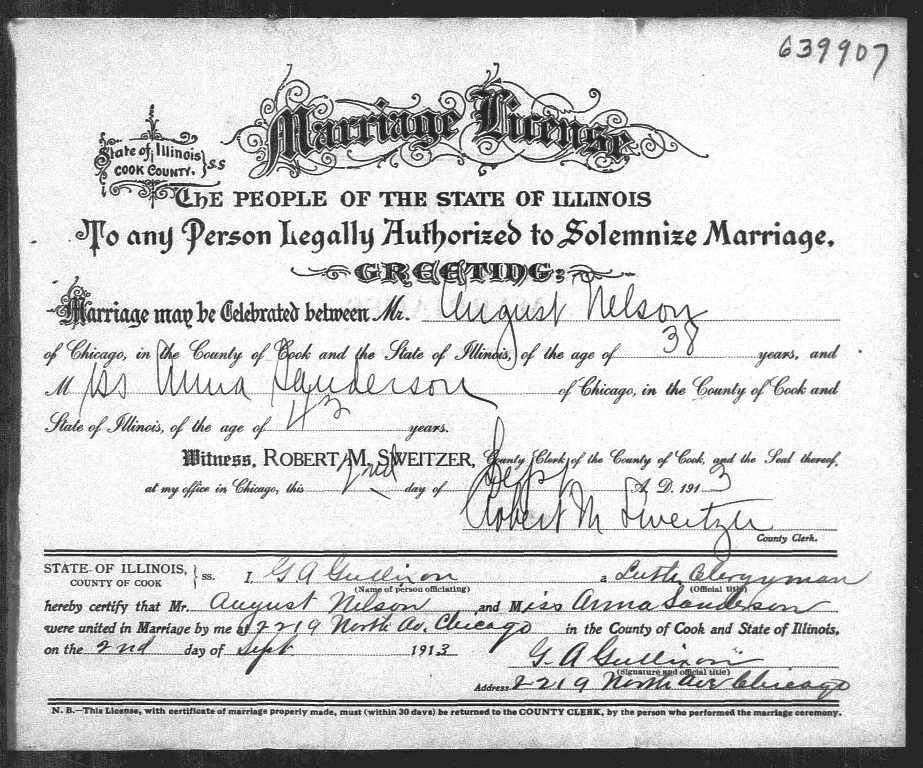 639907
Marriage License
State of Illinois
COOK COUNTY. } S S
THE PEOPLE OF THE STATE OF ILLINOIS
To any Person Legally Authorized to Solemnize Marriage.
GREETING:
Marriage may be Celebrated between Mr. August Nelson
of Chicago, in the County of Cook and the State of Illinois, of the age of 38 years, and
M iss Anna Sanderson of Chicago, in the County of Cook and
State of Illinois, of the age of 43 years.
Witness, ROBERT M. SWEITZER, County Clerk of the County of Cook, and the Seal thereof,
at my office in Chicago, this 2nd day of Sept A. D. 191 3
Robert M Sweitzer
County Clerk.
STATE OF ILLINOIS,
COUNTY OF COOK } ss. I, G A Gullixon a Luth Clergyman
(Name of person officiating) (Official title)
hereby certify that Mr. August Nelson and Miss Anna Sanderson
were united in Marriage by me at 2219 North Av. Chicago in the County of Cook and State of Illinois,
on the 2nd day of Sept 191 3
G. A Gullixon
(Signature and official title)
Address 2219 North Ave Chicago
N. B.—This License, with certificate of marriage properly made, must (within 30 days) be returned to the COUNTY CLERK, by the person who performed the marriage ceremony.